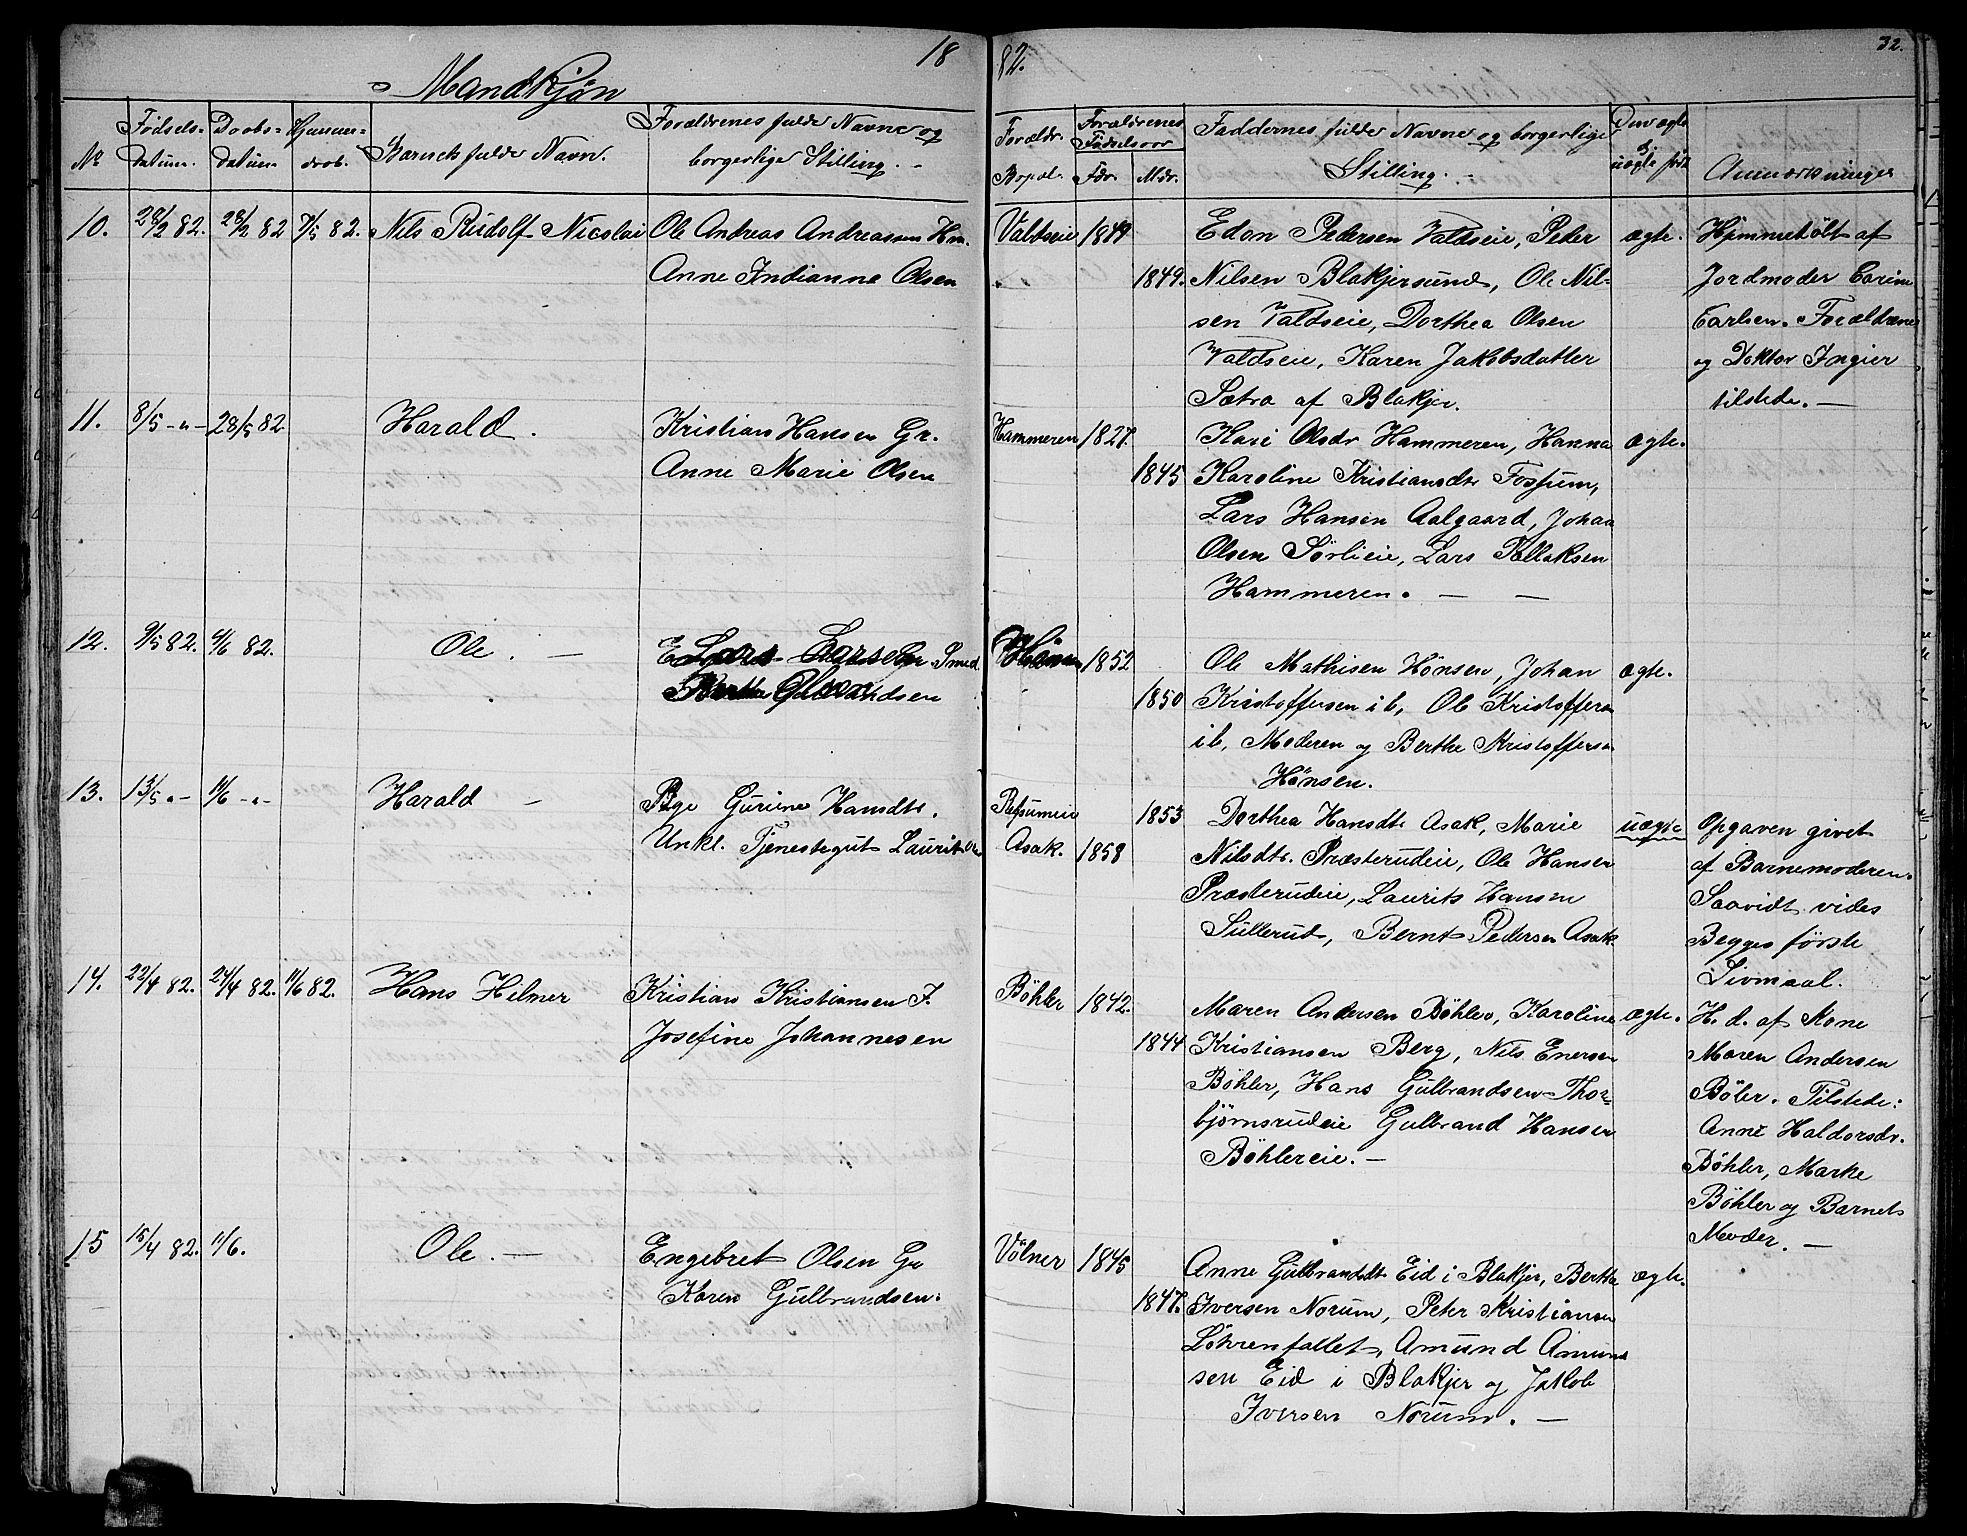 18
82.
32.
Mandkjøn
No
Fødsels-
datum.
Daabs-
datum
Hjemme-
daab.
Barnets fulde Navn.
Forældrenes fulde Navne og
borgerlige Stilling. -
Forældr.
Bopæl.
Forældrenes
Fødselsaar
Fdr.
Mdr.
Faddernes fulde Navne og borgerlige
Stilling. -
Om ægte
el.
uægte født
Anmærkninger
10. 28/2 82. 28/2 82 7/5 82. Nils Rudolf Nicolai Ole Andreas Andreassen Hm.
Anne Indianne Olsen
Valdseie 1849
1849.
Edon Pedersen Valdseie, Peter
Nilsen Blakjersund, Ole Nil-
sen Valdseie, Dorthea Olsen
Valdseie, Karen Jakobsdatter
Sætra af Blakjer.
ægte.
Hjemmebølt af
Jordmoder Carine
Carlsen. Forældrene
og Doktor Ingier
tilstede. -
11. 8/5 -"- 28/5 82 Harald. Kristian Hansen Gr.
Anne Marie Olsen
Hammeren 1827.
1845
Kari Olsdr Hammeren, Hanna
Karoline Kristiansdt. Fossum,
Lars Hansen Aalgaard, Johan
Olsen Sørlieie, Lars Tollaksen
Hammeren. - -
ægte.
12. 9/5 82. 4/6 82. Ole. - Smed
Hønsen 1852
1850
Ole Mathisen Hønsen, Johan
Kristoffersen ib, Ole Kristoffersen
ib, Moderen og Berthe Kristoffersen
Hønsen.
ægte.
13. 13/5 -"- 11/6 -"- Harald - Pge Gurine Hansdt.
Unkl. Tjenestegut Laurits
Refsumeie
Asak. 1858
1853
Dorthea Hansdt. Asak, Marie
Nilsdt. Præsterudeie, Ole Hansen
Præsterudeie, Laurits Hansen
Sullerud, Bernt Pedersen Asak
uægte
Opgaven givet
af Barnemoderen.
Saavidt vides
Begges første
Leiermaal.
14. 22/4 82. 24/4 82. 11/6 82. Hans Hilmer Kristian Kristiansen I.
Josefine Johannesen
Bøhler 1842.
1844
Maren Andersen Bøhler, Karoline
Kristiansen Berg, Nils Enersen
Bøhler, Hans Gulbrandsen Thor-
bjørnsrudeie Gulbrand Hansen
Bøhlereie. -
ægte.
H. d. af Kone
Maren Andersen
Bøler. Tilstede:
Anne Haldorsdr.
Bøhler, Marke
Bøhler og Barnets
Moder. -
15 15/4 82. 11/6. Ole. - Engebret Olsen Gr
Karen Gulbrandsen.
Vølner 1845
1847.
Anne Gulbrandsdt Eid i Blakjer, Bertha
Iversen Norum, Peter Kristiansen
Løkrenfallet, Amund Amund
sen Eid i Blakjer og Jakob
Iversen Norum. -
ægte.